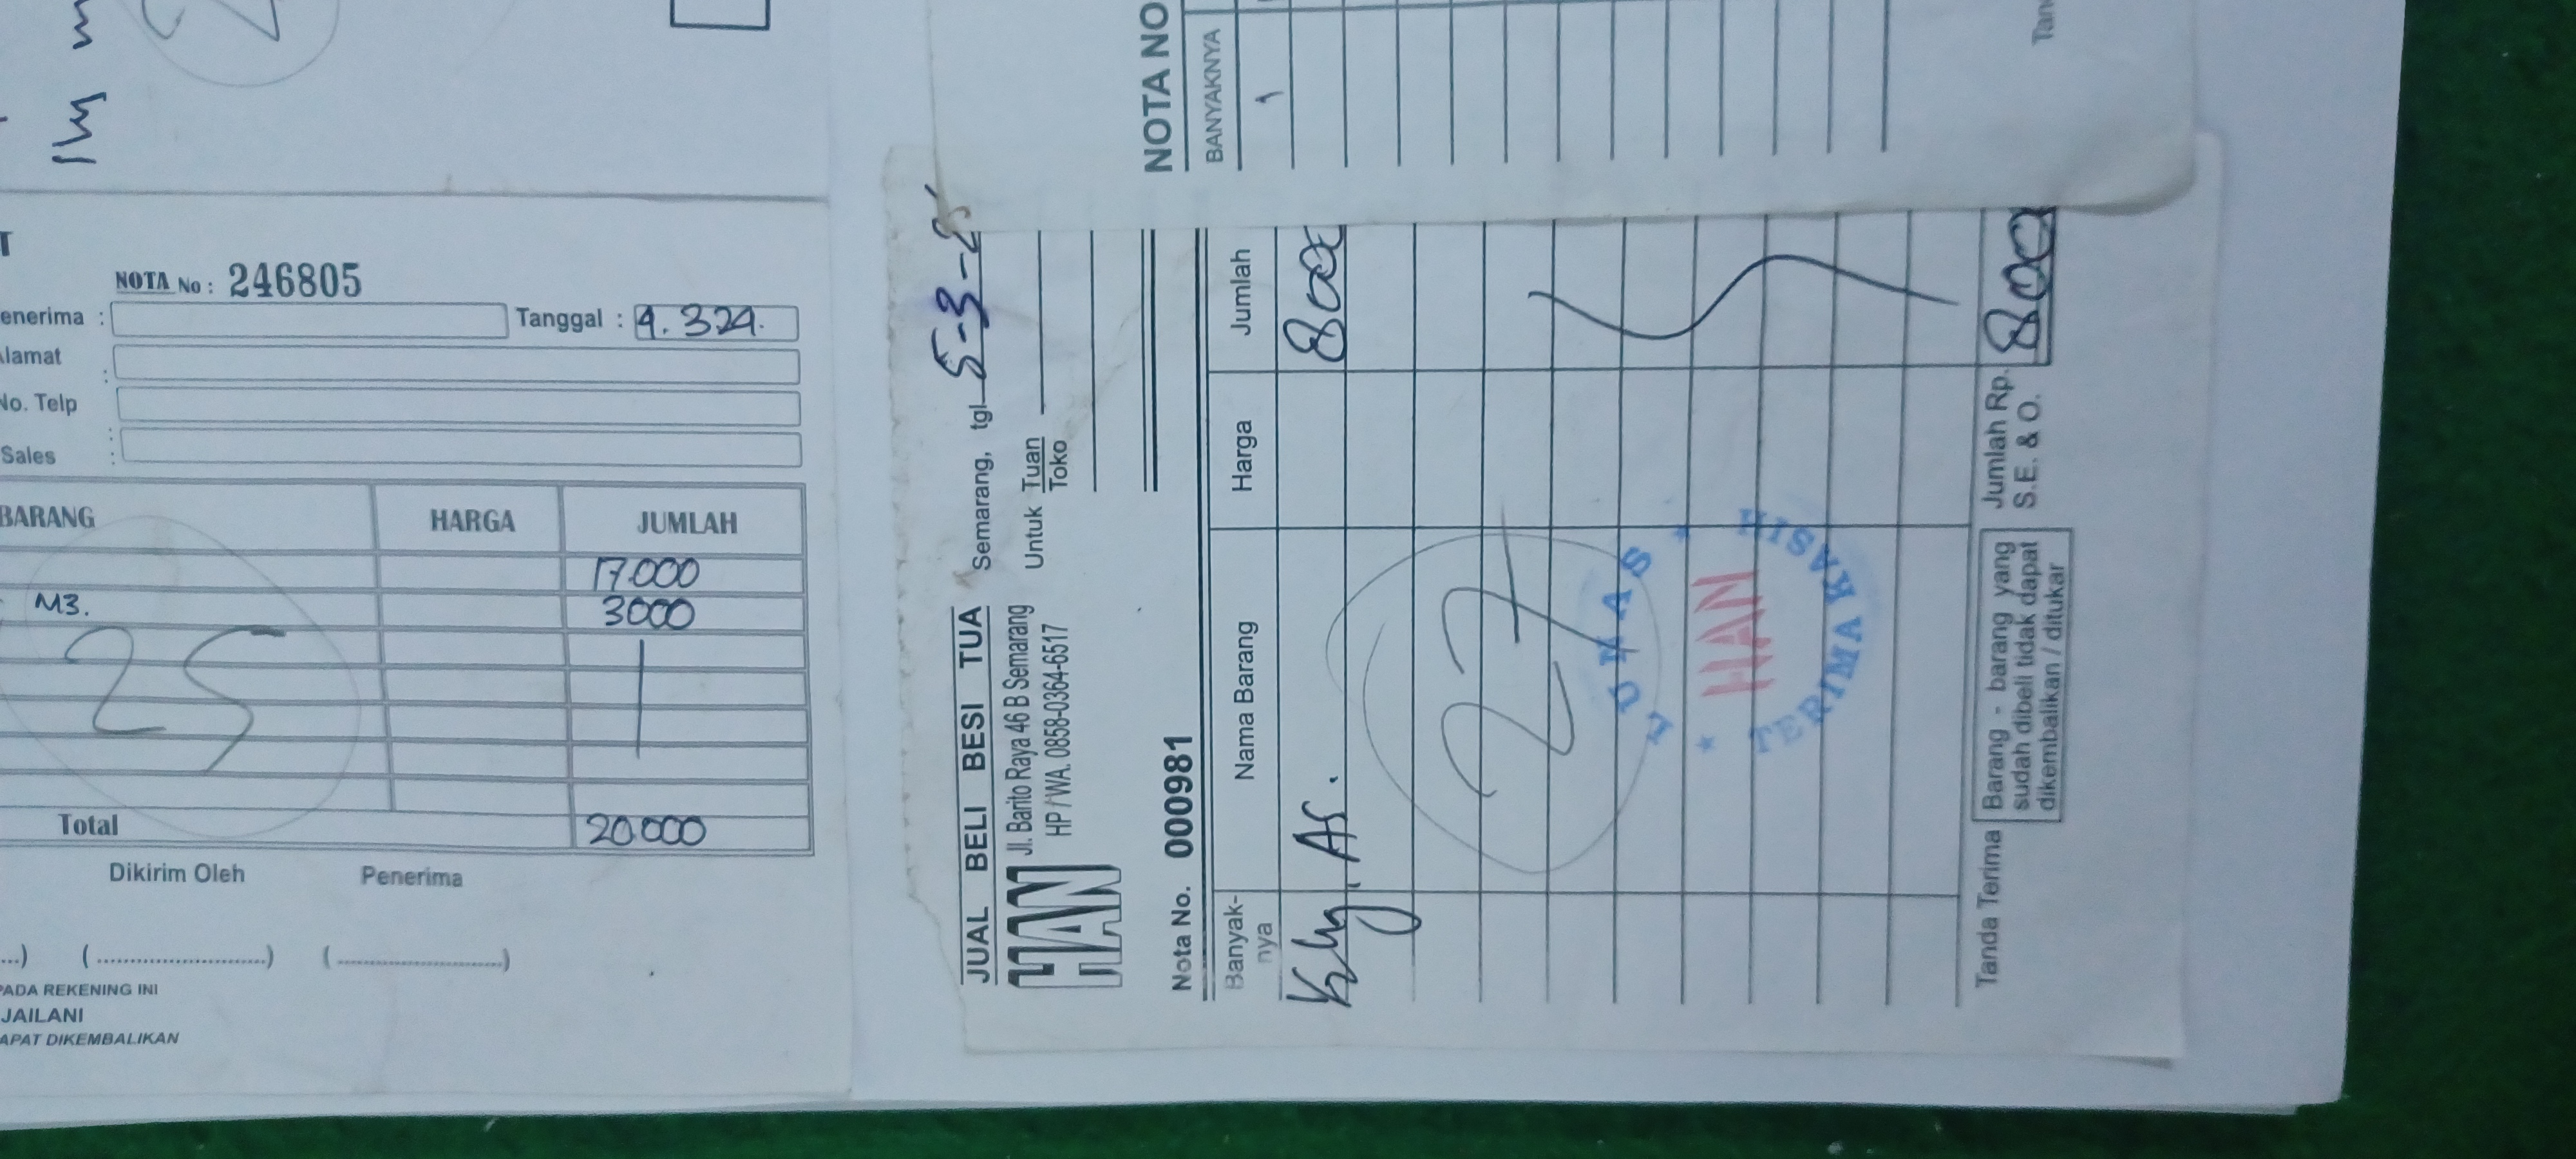 JUAL BELI BESI TUA
HAN
Jl. Barito Raya 46 B Semarang
HP / WA. 0858-0364-6517
Semarang, tgl. 5-3-25
Untuk Tuan
Toko
Nota No. 000981
Banyak-nya Nama Barang Harga Jumlah
As. 8000
27
LUNAS
HAN
TERIMA KASIH
Tanda Terima
Barang - barang yang
sudah dibeli tidak dapat
dikembalikan / ditukar
Jumlah Rp. 8000
S.E. & O.
NOTA NO
BANYAKNYA
1
Tan
NOTA No : 246805
enerima :
Tanggal : 4.324.
lamat :
No. Telp :
Sales :
BARANG HARGA JUMLAH
17.000
M3. 3000
25
Total 20.000
Dikirim Oleh Penerima
ADA REKENING INI
JAILANI
APAT DIKEMBALIKAN